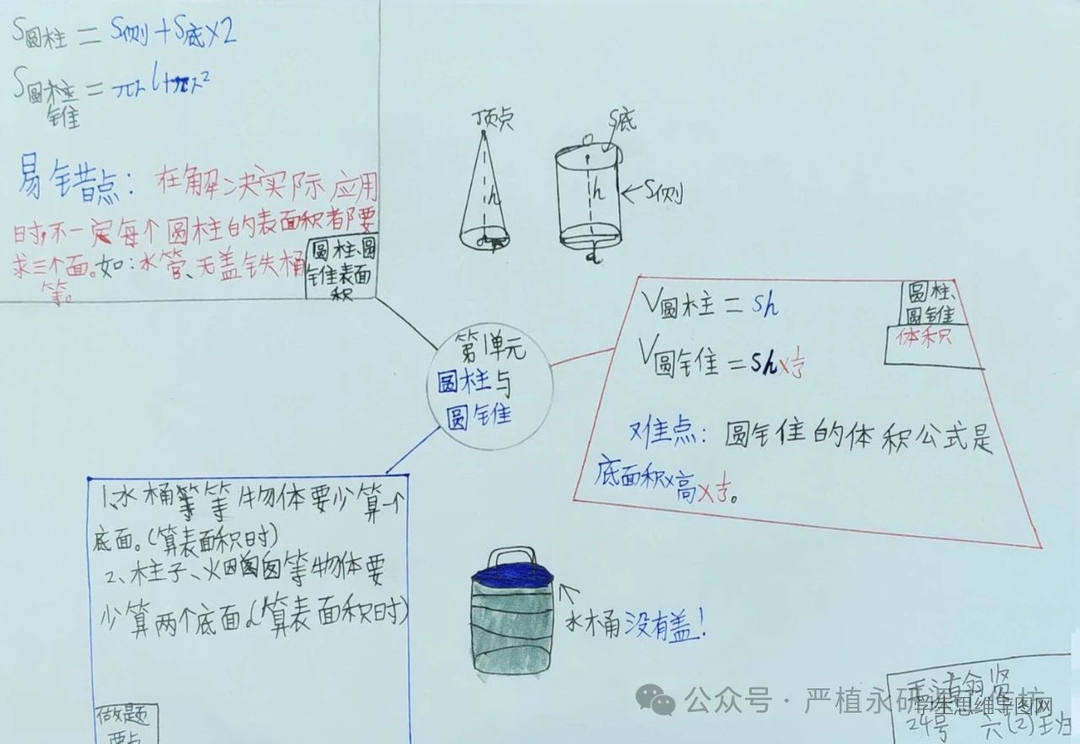 S圆柱 = S侧 + S底×2
S圆柱 = πrl+πr²
锥
易错点：在解决实际应用
时,不一定每个圆柱的表面积都要
求三个面。如：水管、无盖铁桶
等。
圆柱、圆
锥表面
积
顶点
h
r
S底
h
S侧
d
第1单元
圆柱与
圆锥
V圆柱 = Sh
V圆锥 = Sh×⅓
难点：圆锥的体积公式是
底面积×高×⅓。
圆柱、
圆锥
体积
1、水桶等等物体要少算一个
底面。(算表面积时)
2、柱子、等物体要
少算两个底面。(算表面积时)
做题
要点
水桶没有盖!
公众号·严植永研
学生思维导图网
24号 六(2)班